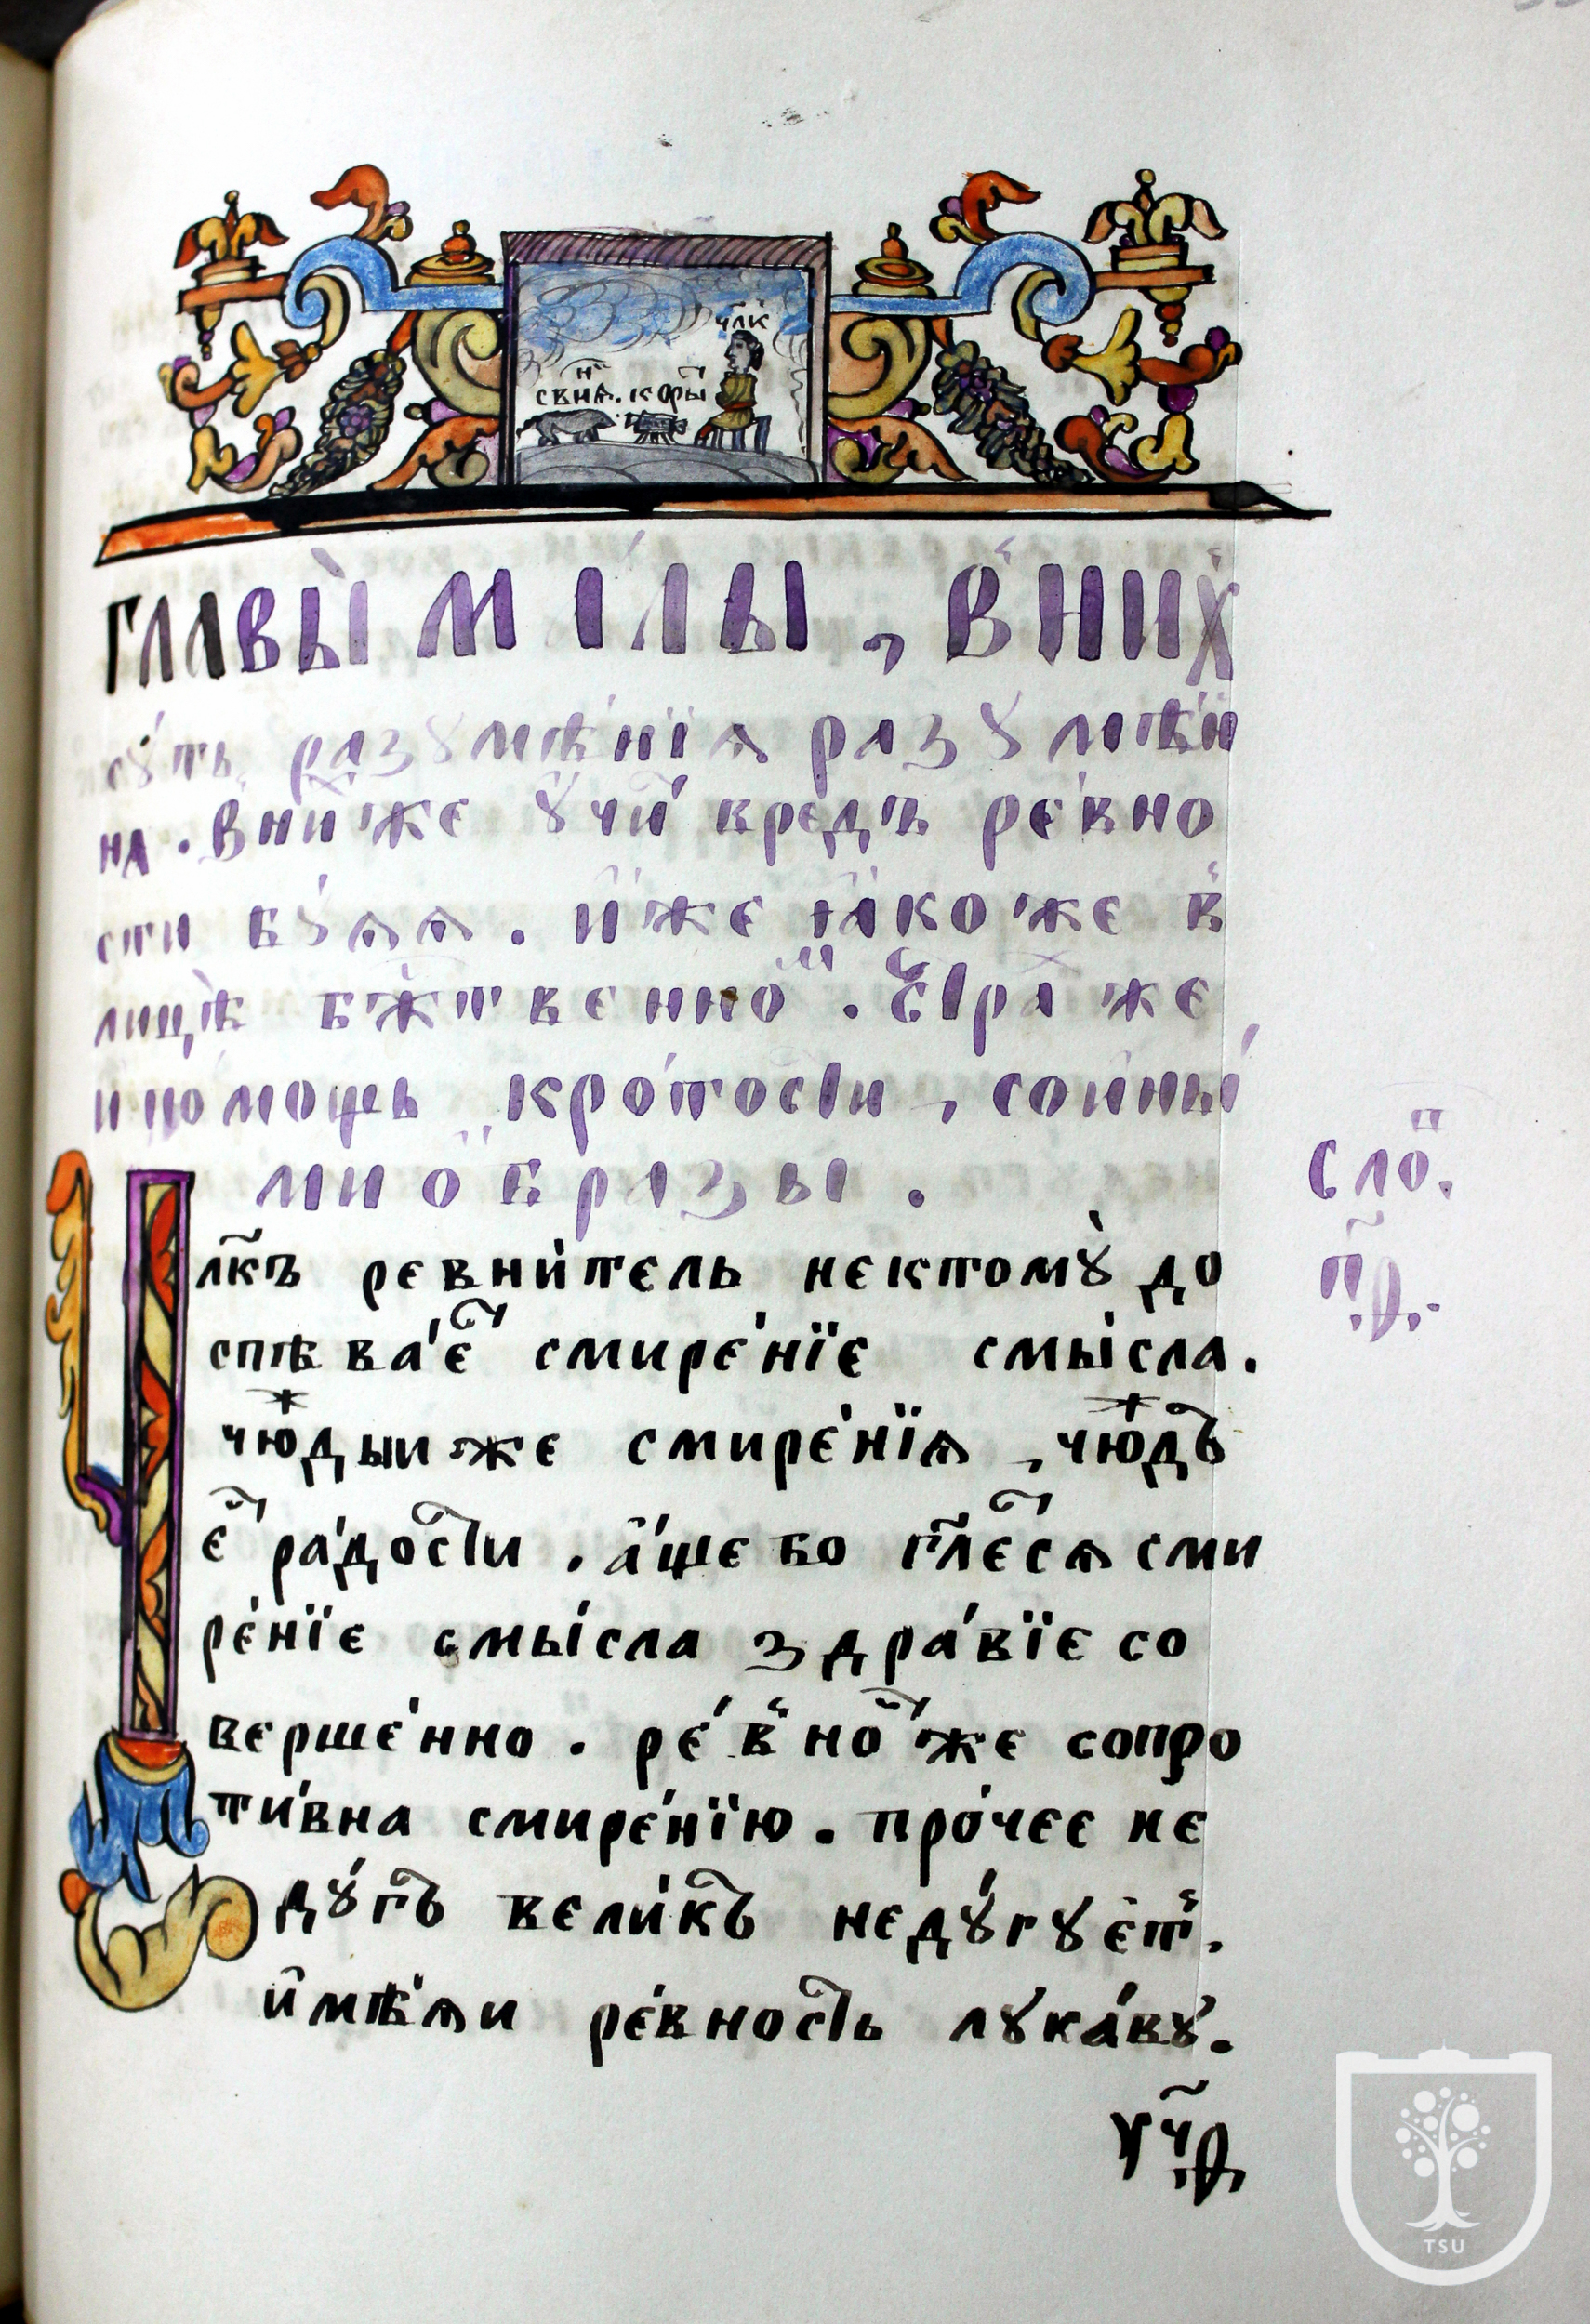 члк
свнѧ. коры
ГЛАВЫ МАЛЫ , ВНИХ
сꙋть разꙋмѣнїѧ разꙋмѣн
на . внийже ꙋчи вредъ ревно
сти бꙋѧѧ . иже ꙗкоже в
лицѣ бжтвенно . Єгра же
ипомощь кротости , соины
ми образы .
сло.
п҃д.
лк҃ъ ревни́тель нектомꙋ̀ до
спѣва́є смире́нїе смы́сла .
чю́дыиже смире́нїѧ , чю́дъ
є҃ ра́дости . а́ще бо гл҃єсѧ сми
ре́нїе смы́сла здра́вїе со
верше́нно . ре́вно же сопро
ти́вна смире́нїю . про́чее не
дꙋ́гъ вели́къ недꙋ́гꙋєт .
имѣ́ѧи ре́вность лꙋка́вꙋ .
ꙋч҃д
TSU